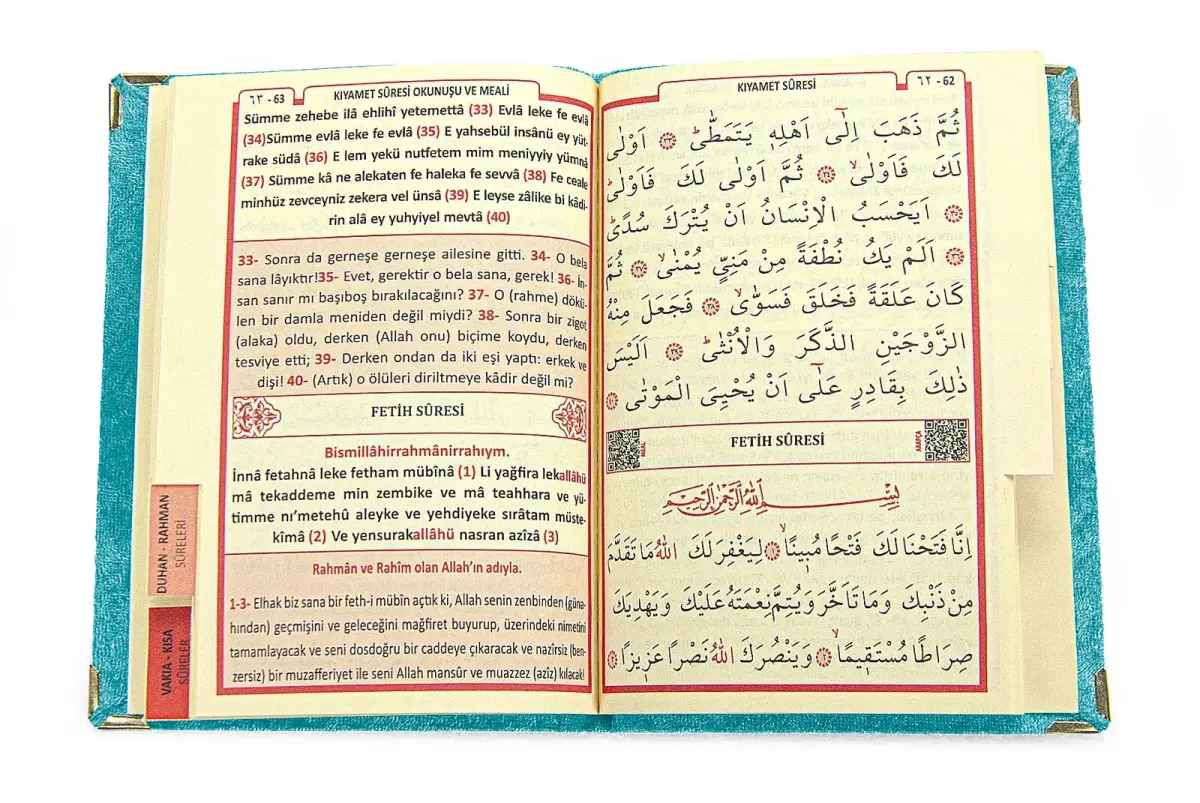 ٦٣ - 63
KIYAMET SÛRESİ OKUNUŞU VE MEALİ
Sümme zehebe ilâ ehlihî yetemettâ (33) Evlâ leke fe evlâ
(34)Sümme evlâ leke fe evlâ (35) E yahsebül insânü ey yüt-
rake südâ (36) E lem yekü nutfetem mim meniyyiy yümnâ
(37) Sümme kâ ne alekaten fe haleka fe sevvâ (38) Fe ceale
minhüz zevceyniz zekera vel ünsâ (39) E leyse zâlike bi kâdi-
rin alâ ey yuhyiyel mevtâ (40)
33- Sonra da gerneşe gerneşe ailesine gitti. 34- O bela
sana lâyıktır!35- Evet, gerektir o bela sana, gerek! 36- İn-
san sanır mı başıboş bırakılacağını? 37- O (rahme) dökü-
len bir damla meniden değil miydi? 38- Sonra bir zigot
(alaka) oldu, derken (Allah onu) biçime koydu, derken
tesviye etti; 39- Derken ondan da iki eşi yaptı: erkek ve
dişi! 40- (Artık) o ölüleri diriltmeye kâdir değil mi?
FETİH SÛRESİ
Bismillâhirrahmânirrahıym.
İnnâ fetahnâ leke fetham mübînâ (1) Li yağfira lekallâhü
mâ tekaddeme min zembike ve mâ teahhara ve yü-
timme nı’metehû aleyke ve yehdiyeke sırâtam müste-
kîmâ (2) Ve yensurakallâhü nasran azîzâ (3)
Rahmân ve Rahîm olan Allah’ın adıyla.
1-3- Elhak biz sana bir feth-i mübîn açtık ki, Allah senin zenbinden (güna-
hından) geçmişini ve geleceğini mağfiret buyurup, üzerindeki nimetini
tamamlayacak ve seni dosdoğru bir caddeye çıkaracak ve nazîrsiz (ben-
zersiz) bir muzafferiyet ile seni Allah mansûr ve muazzez (azîz) kılacak!
DUHAN - RAHMAN
SÛRELERİ
VAKIA - KISA
SÛRELER
KIYAMET SÛRESİ
٦٢ - 62
ثُمَّ ذَهَبَ اِلٰٓى اَهْلِه۪ يَتَمَطّٰىۜ ﴿٣٣﴾ اَوْلٰى
لَكَ فَاَوْلٰىۙ ﴿٣٤﴾ ثُمَّ اَوْلٰى لَكَ فَاَوْلٰىۜ
﴿٣٥﴾ اَيَحْسَبُ الْاِنْسَانُ اَنْ يُتْرَكَ سُدًىۜ
﴿٣٦﴾ اَلَمْ يَكُ نُطْفَةً مِنْ مَنِيٍّ يُمْنٰىۙ ﴿٣٧﴾ ثُمَّ
كَانَ عَلَقَةً فَخَلَقَ فَسَوّٰىۙ ﴿٣٨﴾ فَجَعَلَ مِنْهُ
الزَّوْجَيْنِ الذَّكَرَ وَالْاُنْثٰىۜ ﴿٣٩﴾ اَلَيْسَ
ذٰلِكَ بِقَادِرٍ عَلٰٓى اَنْ يُحْيِيَ الْمَوْتٰى ﴿٤٠﴾
MEAL
FETİH SÛRESİ
ARAPÇA
بِسْمِ اللّٰهِ الرَّحْمٰنِ الرَّح۪يمِ
اِنَّا فَتَحْنَا لَكَ فَتْحًا مُب۪ينًاۙ ﴿١﴾ لِيَغْفِرَ لَكَ اللّٰهُ مَا تَقَدَّمَ
مِنْ ذَنْبِكَ وَمَا تَاَخَّرَ وَيُتِمَّ نِعْمَتَهُ عَلَيْكَ وَيَهْدِيَكَ
صِرَاطًا مُسْتَق۪يمًاۙ ﴿٢﴾ وَيَنْصُرَكَ اللّٰهُ نَصْرًا عَز۪يزًا ﴿٣﴾